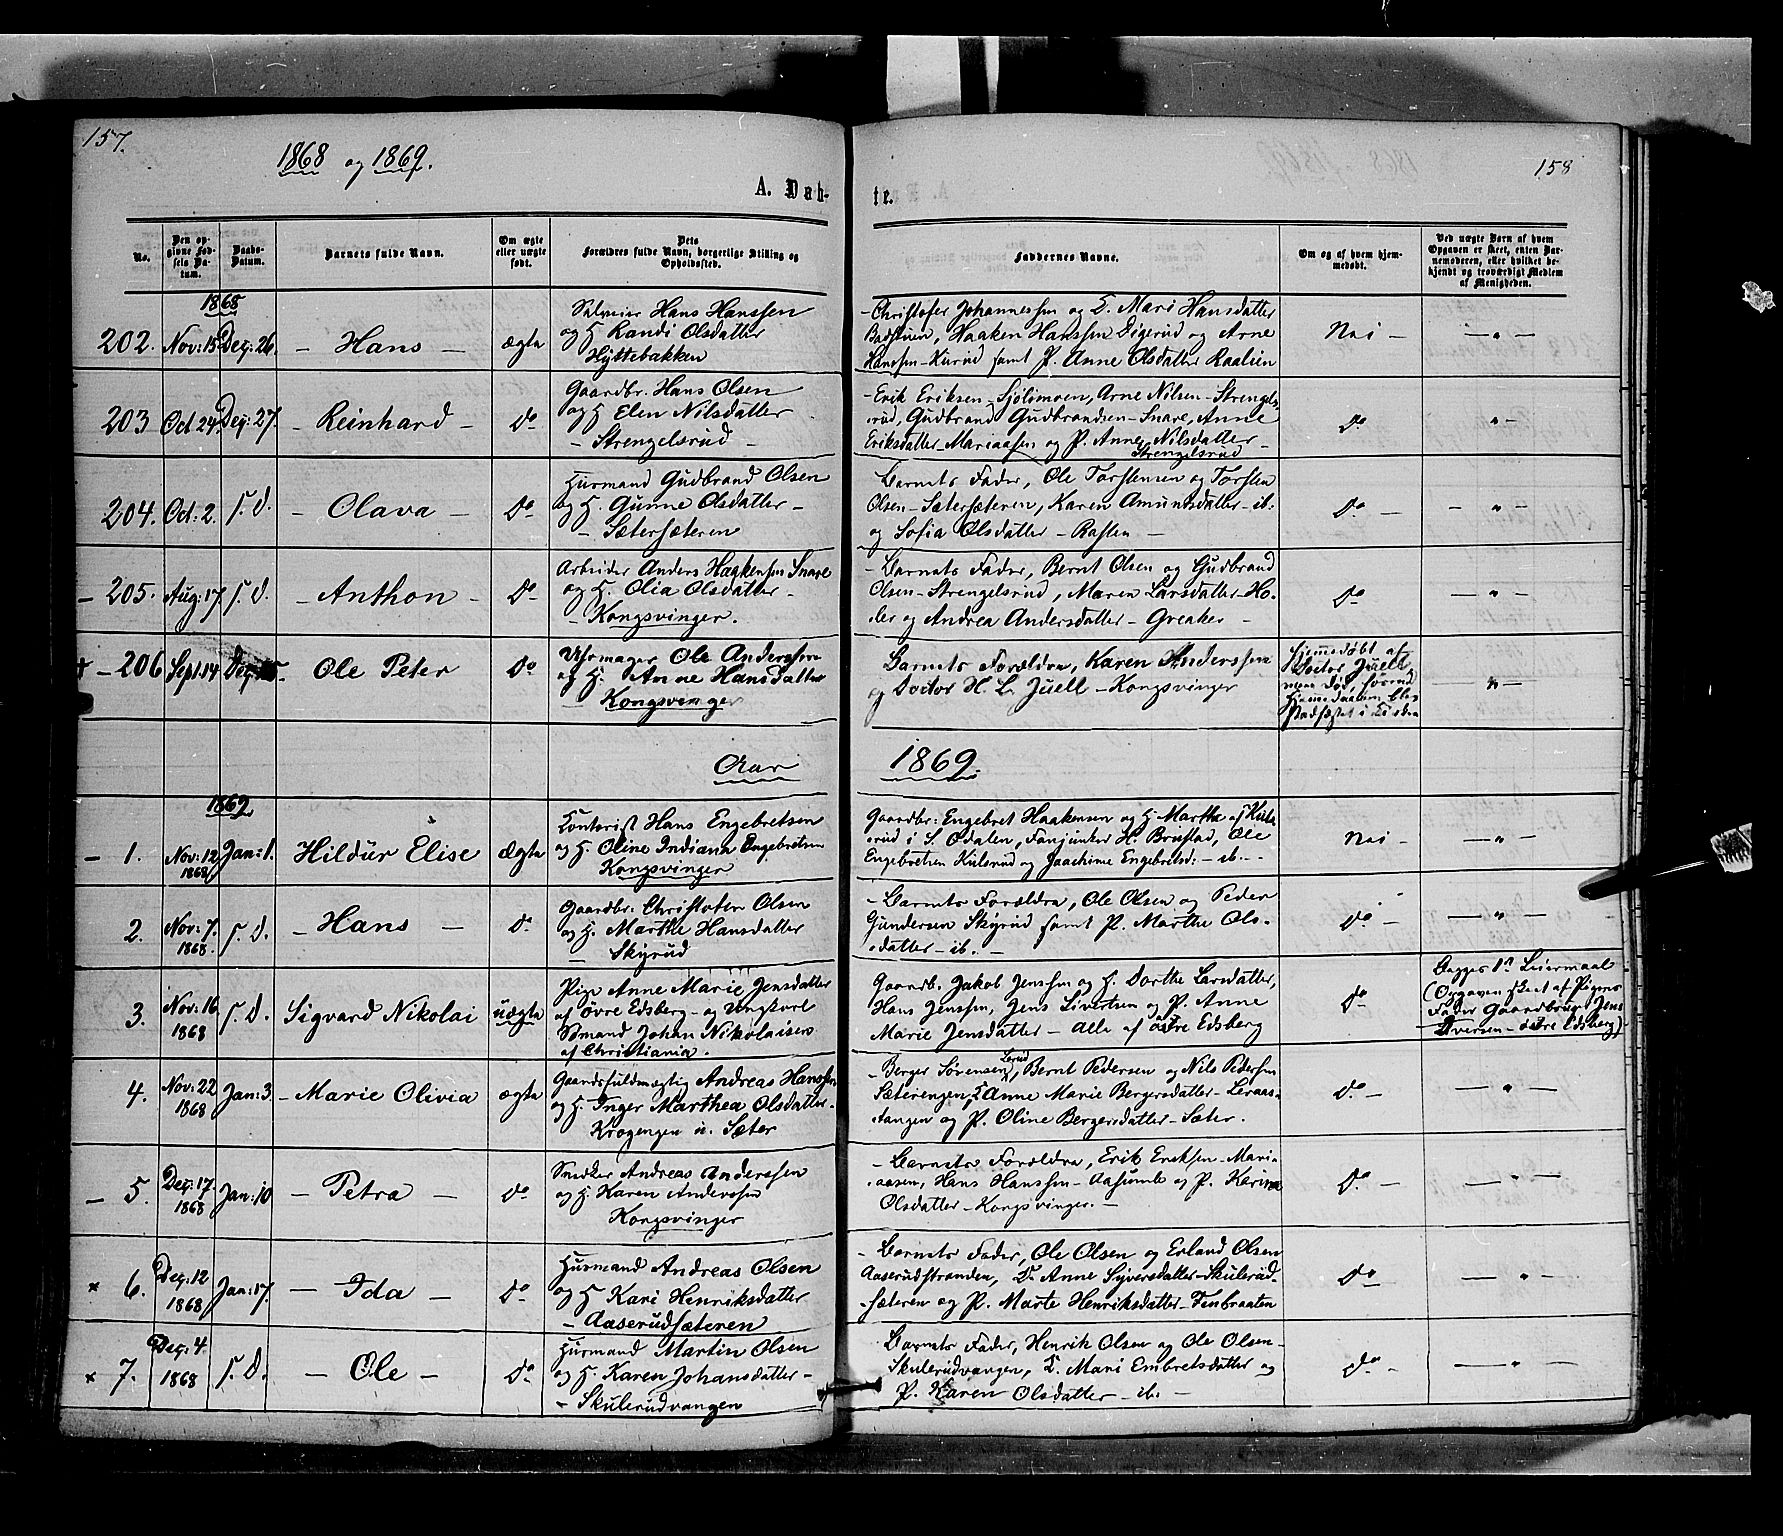 157.
1868 og 1869.
A. Døb-
te.
158
No.
Den op-
givne Fød-
sels Da-
tum.
Daabs-
Datum.
Barnets fulde Navn.
Om ægte
eller uægte
født.
Dets
Forældres fulde Navn, borgerlige Stilling og
Opholdssted.
Faddernes Navne.
Om og af hvem hjem-
medøbt.
Ved uægte Barn af hvem
Opgaven er skeet, enten Bar-
nemoderen, eller hvilket be-
kjendt og troværdigt Medlem
af Menigheden.
1868
202. Nov: 15 Dez: 26. - Hans - ægte
Hans Hanssen
og H. Randi Olsdatter
Hyttebakken
- Christofer Johannessen og Mari Hansdatter
Haaken Hanssen Digerud og Arne
Hanssen Kurud samt P. Anne Olsdatter Raalien
Nei - - " -
203 Oct 24. Dez: 27. - Reinhard - do
Gaardbr. Hans Olsen
og H. Elen Nilsdatter
- Strengelsrud -
- Erik Eriksen - Sjölimoen, Arne Nilsen - Strengels-
rud, Gudbrand Gudbrandsen - Snare, Anne
Eriksdatter - Mariaasen og P. Anne Nilsdatter -
Strengelsrud
do " -
204. Oct: 2. s. D. - Olava - do
Husmand Gudbrand Olsen
og H. Gunne Olsdatter -
- Sætersæteren
- Barnets Fader, Ole Torstensen og Torsten
Olsen - Sætersæteren, Karen Amundsdatter - ib.
og Sofia Olsdatter - Rasten -
do - - " -
- 205. Aug: 17 s. D. - Anthon - do
Arbeider Anders Haakensen Snare
og H. Olia Olsdatter -
- Kongsvinger.
- Barnets Fader, Bernt Olsen og Gudbrand
Olsen - Strengelsrud, Maren Larsdatter - Ho-
ler og Andrea Andersdatter - Greaker -
do - " -
+ - 206 Sept. 14 Ole Peter do
Uhrmager Ole Anderssen
og H. Anne Hansdatter
Kongsvinger
Barnets Forældre, Karen Anderssen
og Doctor H. L. Juell - Kongsvinger
Hjemmedøbt af
Doctor Juell,
men død, førend
Hjemmedaaben blev
stadfæstet i Kirken
" -
Aar 1869.
1869
- 1. Nov: 12 Jan: 1. Hildur Elise ægte
1868
Kontorist Hans Engebretsen
og H. Oline Indiana Engebretsen
Kongsvinger
Gaardbr: Engebret Haakensen og H. Marthe af Kuls-
rud i S. Odalen, Fanjunker H. Brustad, Ole
Engebretsen Kulsrud og Joachime Engebretsd: - ib. -
Nei - - " -
2. Nov: 7. s. D. - Hans - do
1868
Gaardbr: Christofer Olsen
og H. Marthe Hansdatter
Skyrud
- Barnets Forældre, Ole Olsen og Peder
Gundersen Skyrud samt P. Marthe Ols-
datter - ib. -
do - - " -
3. Nov: 16 s. D. Sigvard Nikolai uægte
1868
Pige Anne Marie Jensdatter
af Øvre Edsberg - og Ungkarl
Sømand Johan Nikolaisen
af Christiania.
Gaardb. Jakob Jenssen og H. Dorthe Larsdatter,
Hans Jenssen, Jens Sivertsen og P. Anne
Marie Jensdatter - alle af østre Edsberg
do -
Begges 1ste Leiermaal
(Opgaven skeet af Pigens
Fader Gaardbruger Jens
Iversen - østre Edsberg)
4. Nov: 22 Jan: 3. - Marie Olivia ægte
1868
Gaardsfuldmægtig Andreas Hanssen
og H. Inger Marthea Olsdatter -
Krogengen u. Sæter
- Berger Sørensen Lerud, Bernt Pedersen og Nils Pedersen
Sæterengen, Anne Marie Bergersdatter - Leraas-
tangen og P. Oline Bergersdatter - Sæter.
do - - " -
- 5. Dez: 17 Jan: 10 - Petra - do
1868
Snedker Andreas Anderssen
og H. Karen Anderssen
Kongsvinger
- Barnets Forældre, Erik Eriksen - Mari-
aasen, Hans Hanssen - Aasumb og P. Karine
Olsdatter - Kongsvinger. -
do - - " -
x 6. Dez: 12 Jan: 17. - Ida - do
1868
Husmand Andreas Olsen
og H. Kari Henriksdatter
- Aaserudsæteren
- Barnets Fader, Ole Olsen og Erland Olsen
Aaserudstranden, Anne Syversdatter - Skulerud-
sæteren og P. Marte Henriksdatter - Finbraaten
do - " -
x 7. Dez: 4 s. D. - Ole - do
1868
Husmand Martin Olsen
og H. Karen Johansdatter -
- Skulerudvangen
Barnets Fader, Henrik Olsen og Ole Olsen -
Skulerudvangen, Mari Embretsdatter og
P. Karen Olsdatter - ib. -
do - " -